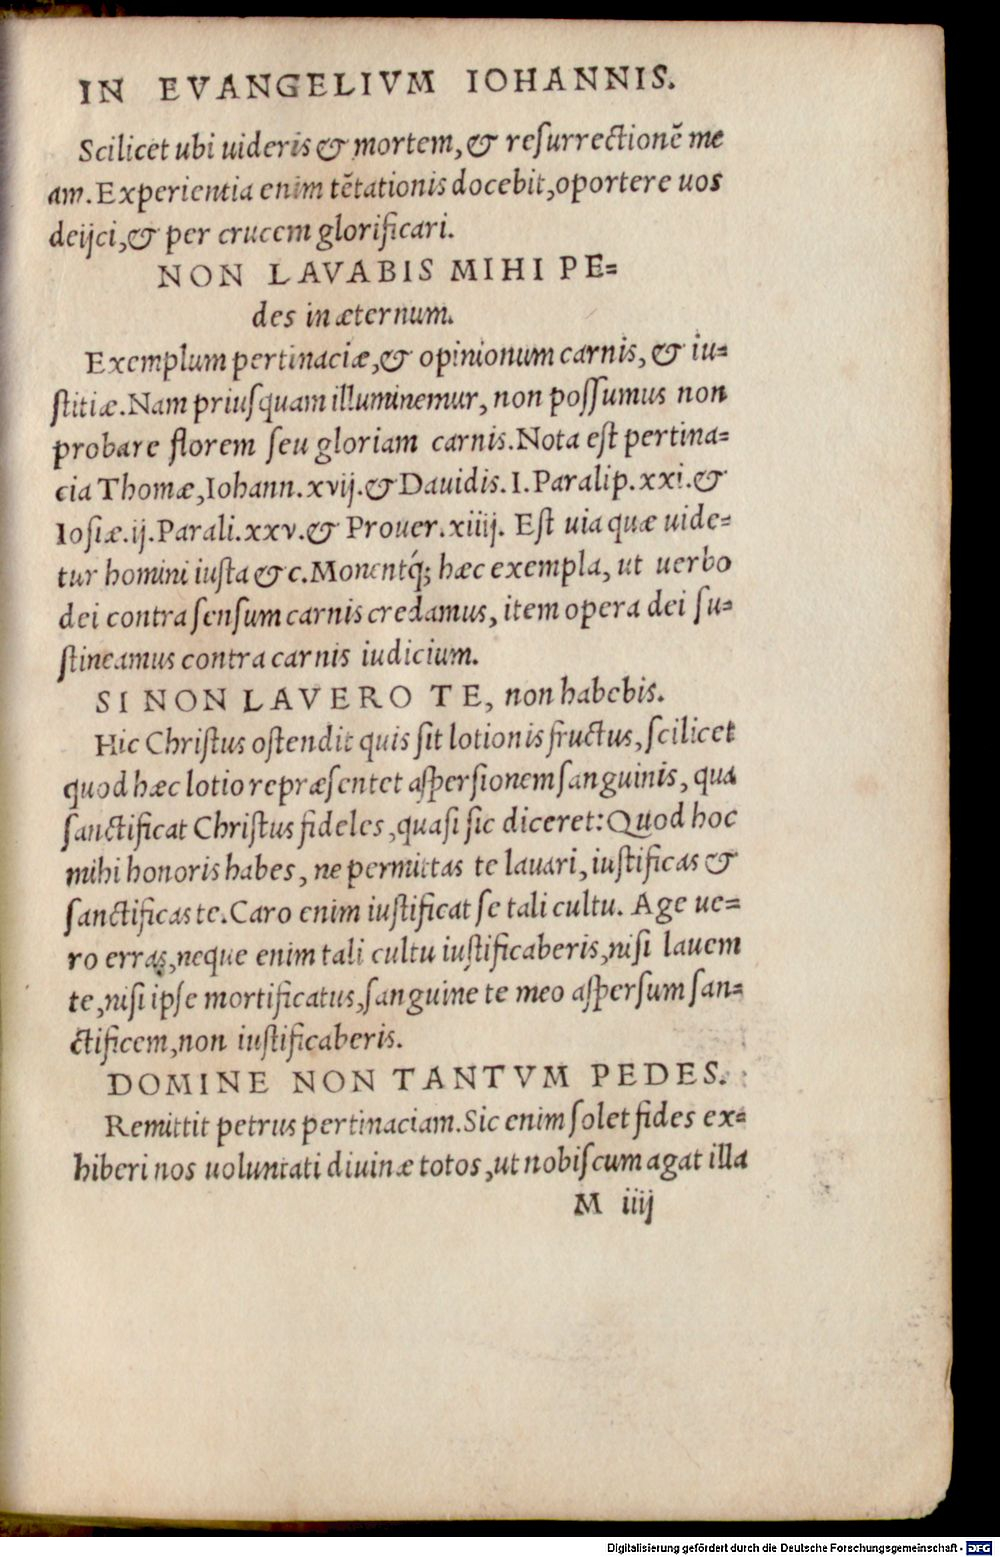 IN EVANGELIVM IOHANNIS.
Scilicet ubi uideris & mortem, & reſurrectionē me
am. Experientia enim tētationis docebit, oportere uos
deijci, & per crucem glorificari.
NON LAVABIS MIHI PE=
des in æternum.
Exemplum pertinaciæ, & opinionum carnis, & iu=
ſtitiæ. Nam priuſquam illuminemur, non poſſumus non
probare florem ſeu gloriam carnis. Nota eſt pertina=
cia Thomæ, Iohann. xvij. & Dauidis. I. Paralip. xxi. &
Ioſiæ. ij. Parali. xxv. & Prouer. xiiij. Eſt uia quæ uide=
tur homini iuſta & c. Monentq́; hæc exempla, ut uerbo
dei contra ſenſum carnis credamus, item opera dei ſu=
ſtineamus contra carnis iudicium.
SI NON LAVERO TE, non habebis.
Hic Chriſtus oſtendit quis ſit lotionis fructus, ſcilicet
quod hæc lotio repræſentet aſperſionem ſanguinis, qua
ſanctificat Chriſtus fideles, quaſi ſic diceret: Quod hoc
mihi honoris habes, ne permittas te lauari, iuſtificas &
ſanctificas te. Caro enim iuſtificat ſe tali cultu. Age ue=
ro erras, neque enim tali cultu iuſtificaberis, niſi lauem
te, niſi ipſe mortificatus, ſanguine te meo aſperſum ſan=
ctificem, non iuſtificaberis.
DOMINE NON TANTVM PEDES.
Remittit petrus pertinaciam. Sic enim ſolet fides ex=
hiberi nos uoluntati diuinæ totos, ut nobiſcum agat illa
M iiij
Digitalisierung gefördert durch die Deutsche Forschungsgemeinschaft - DFG